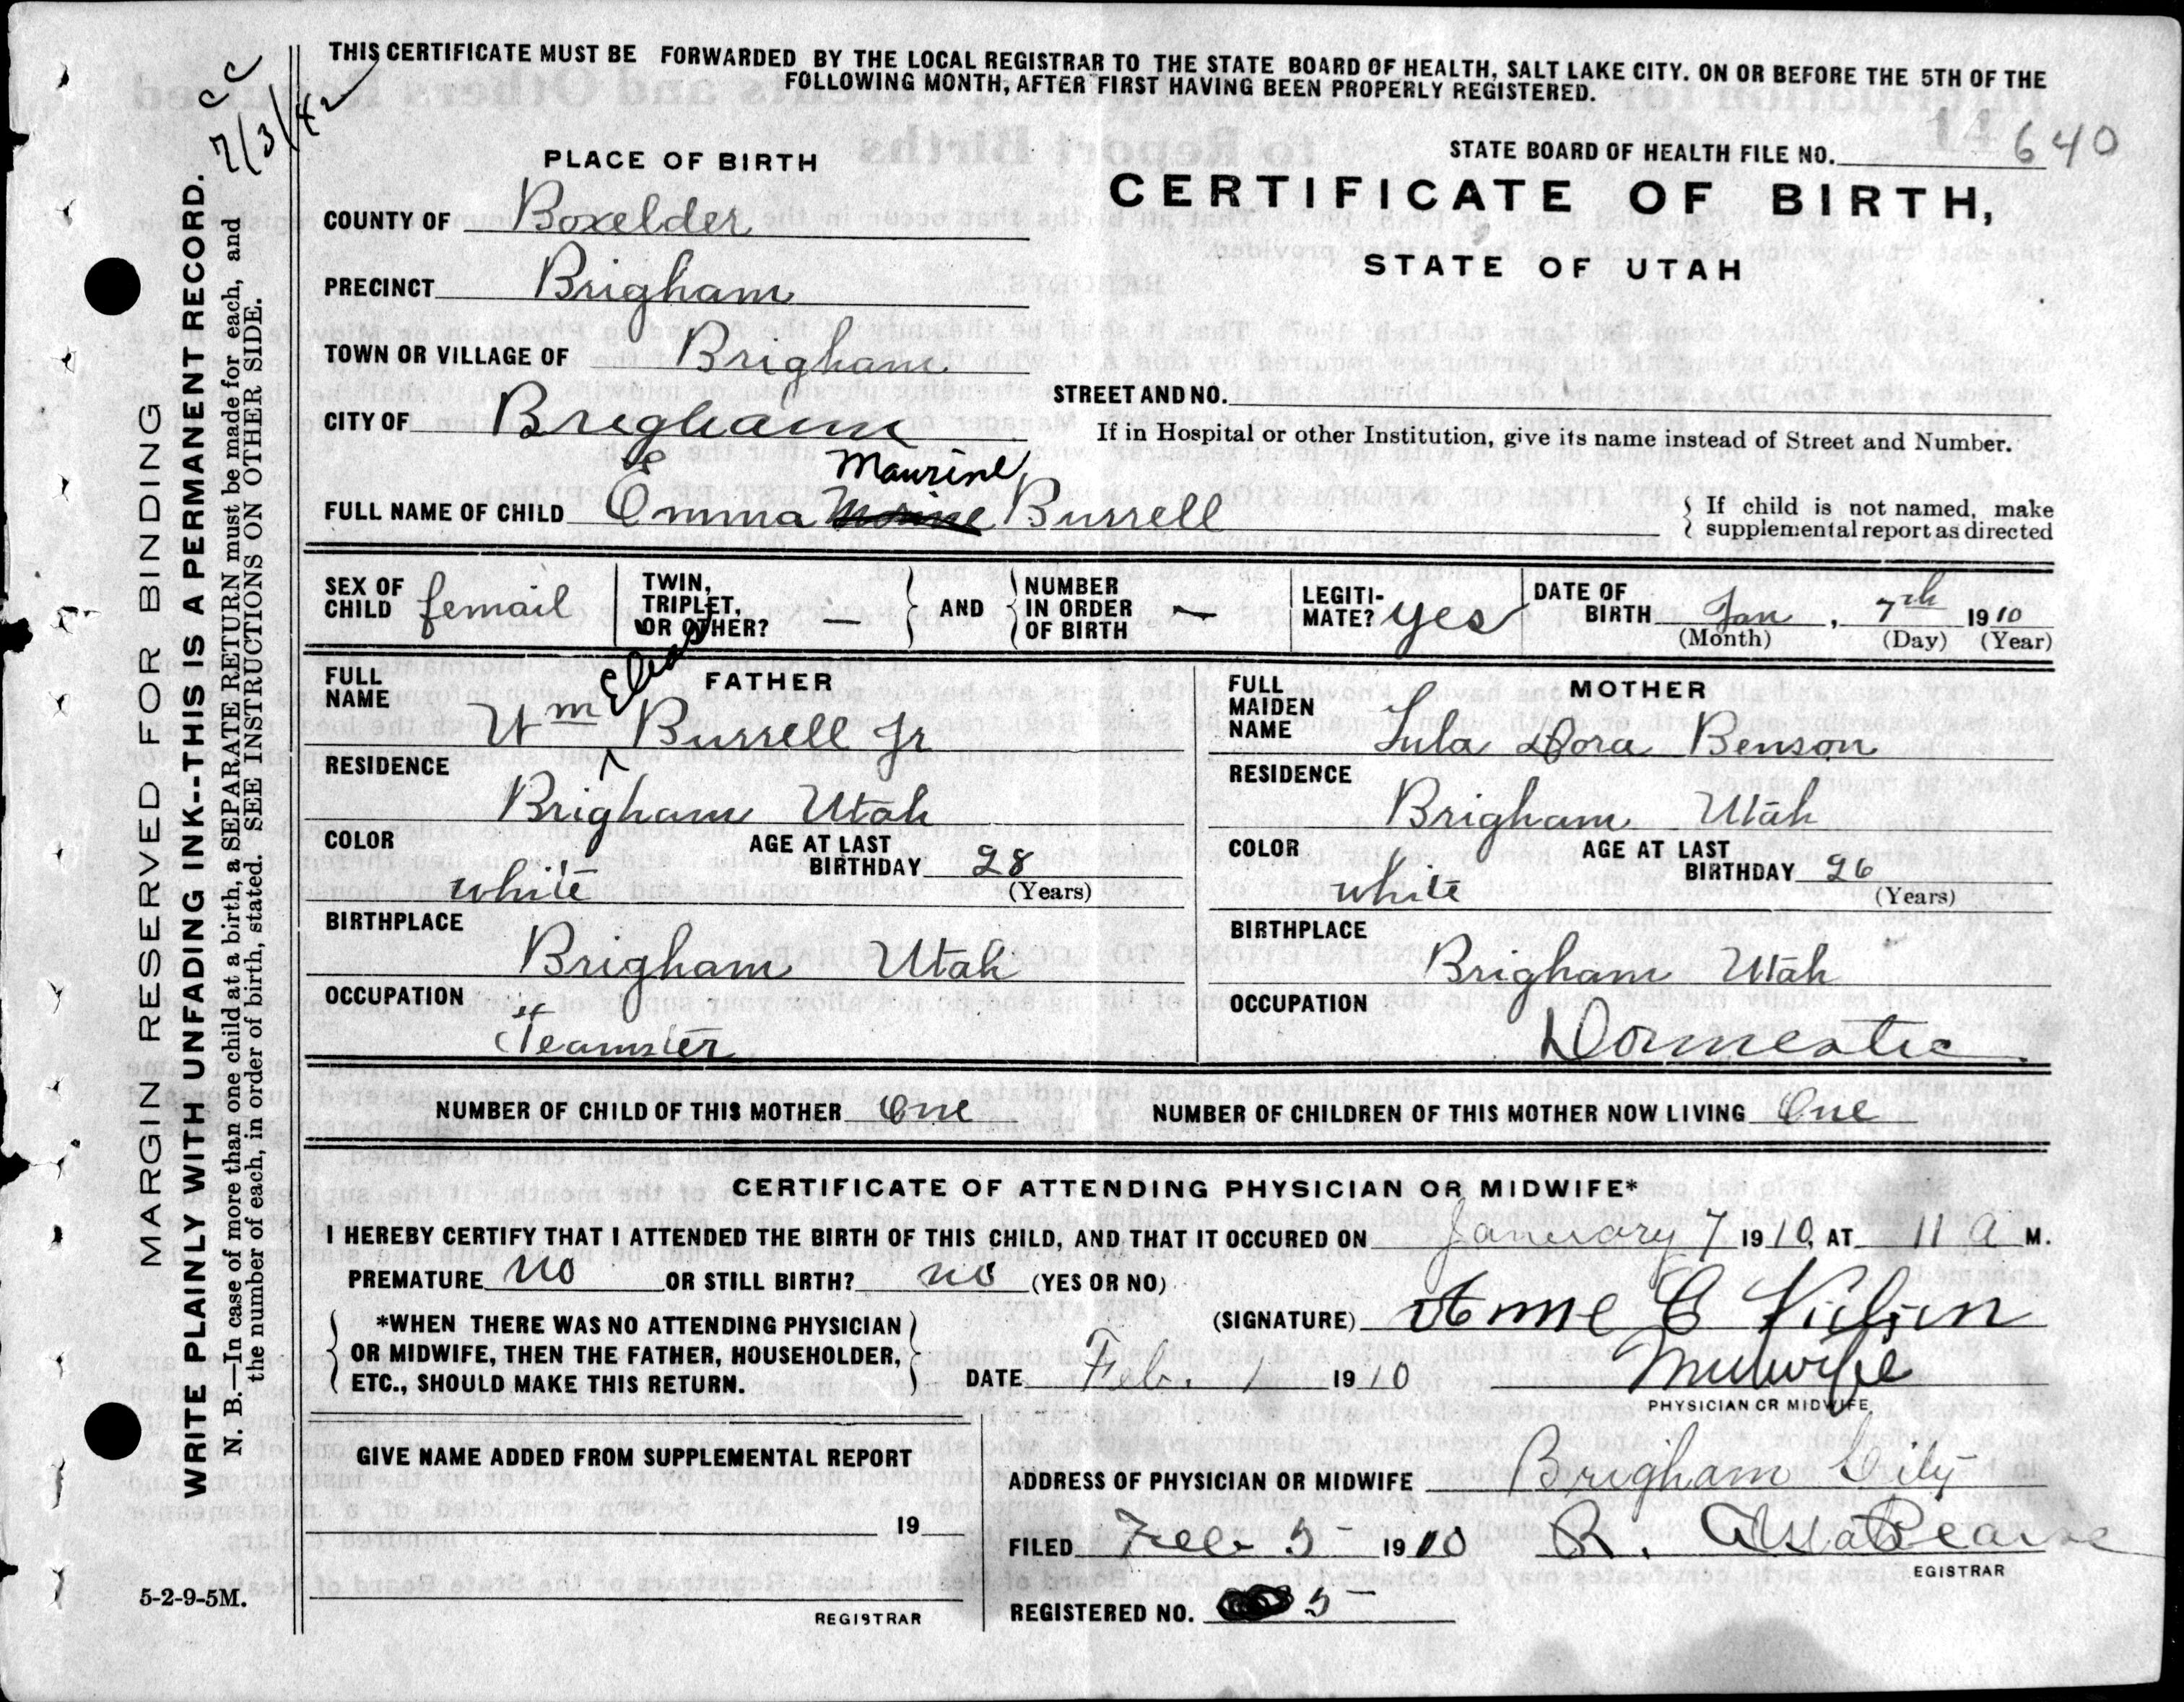 THIS CERTIFICATE MUST BE FORWARDED BY THE LOCAL REGISTRAR TO THE STATE BOARD OF HEALTH, SALT LAKE CITY. ON OR BEFORE THE 5TH OF THE
FOLLOWING MONTH, AFTER FIRST HAVING BEEN PROPERLY REGISTERED.
cc
7/3/42
MARGIN RESERVED FOR BINDING
WRITE PLAINLY WITH UNFADING INK--THIS IS A PERMANENT RECORD.
N. B.—In case of more than one child at a birth, a SEPARATE RETURN must be made for each, and
the number of each, in order of birth, stated. SEE INSTRUCTIONS ON OTHER SIDE.
5-2-9-5M.
PLACE OF BIRTH
STATE BOARD OF HEALTH FILE NO. 14 640
CERTIFICATE OF BIRTH,
STATE OF UTAH
COUNTY OF Boxelder
PRECINCT Brigham
TOWN OR VILLAGE OF Brigham
STREET AND NO.
CITY OF Brigham
If in Hospital or other Institution, give its name instead of Street and Number.
Maurine
FULL NAME OF CHILD Emma Burrell
If child is not named, make
supplemental report as directed
SEX OF CHILD femail
TWIN, TRIPLET, OR OTHER? —
AND
NUMBER IN ORDER OF BIRTH —
LEGITI-MATE? yes
DATE OF BIRTH Jan, 7th 1910
(Month) (Day) (Year)
FATHER
FULL NAME Wm Elias Burrell Jr
RESIDENCE
Brigham Utah
COLOR white
AGE AT LAST BIRTHDAY 28
(Years)
BIRTHPLACE
Brigham Utah
OCCUPATION
Teamster
MOTHER
FULL MAIDEN NAME Lula Dora Benson
RESIDENCE
Brigham Utah
COLOR white
AGE AT LAST BIRTHDAY 26
(Years)
BIRTHPLACE
Brigham Utah
OCCUPATION
Domestic
NUMBER OF CHILD OF THIS MOTHER One
NUMBER OF CHILDREN OF THIS MOTHER NOW LIVING One
CERTIFICATE OF ATTENDING PHYSICIAN OR MIDWIFE*
I HEREBY CERTIFY THAT I ATTENDED THE BIRTH OF THIS CHILD, AND THAT IT OCCURED ON January 7 1910, AT 11 A M.
PREMATURE no OR STILL BIRTH? no (YES OR NO)
*WHEN THERE WAS NO ATTENDING PHYSICIAN
OR MIDWIFE, THEN THE FATHER, HOUSEHOLDER,
ETC., SHOULD MAKE THIS RETURN.
(SIGNATURE) C
DATE Feb. 1 1910 Midwife
PHYSICIAN OR MIDWIFE
GIVE NAME ADDED FROM SUPPLEMENTAL REPORT
19
REGISTRAR
ADDRESS OF PHYSICIAN OR MIDWIFE Brigham City
FILED Feb 5 1910 R.
EGISTRAR
REGISTERED NO. 5